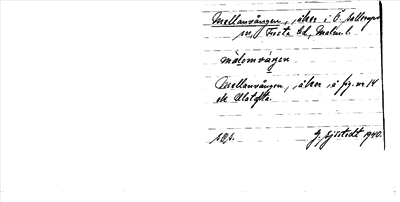 Mellanvången, åker i Ö. Sallerups
sn, Frosta hd, Malm. l.
mälomvången
Mellanvången, åker, å fig. nr 14
G. Sjöstedt 1940.